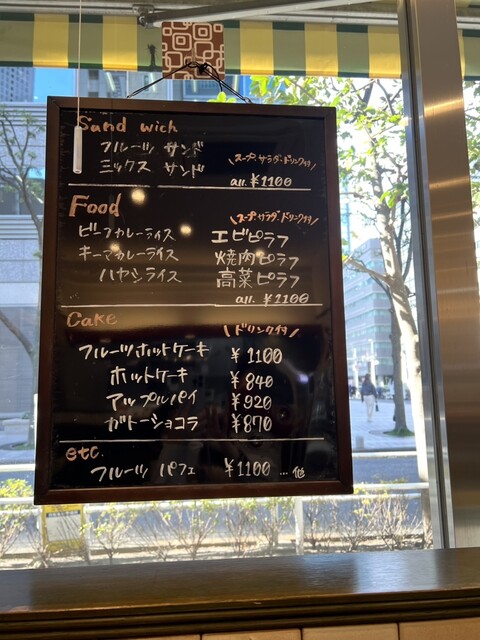 Sand wich
フルーツ サンド
ミックス サンド
\スープ、サラダ、ドリンク付/
all. ¥1100
Food
\スープ、サラダ、ドリンク付/
ビーフカレーライス エビピラフ
キーマカレーライス 焼肉ピラフ
ハヤシライス 高菜ピラフ
all. ¥1100
Cake
\ドリンク付/
フルーツホットケーキ ¥1100
ホットケーキ ¥840
アップルパイ ¥920
ガトーショコラ ¥870
etc.
フルーツ パフェ ¥1100 … 他